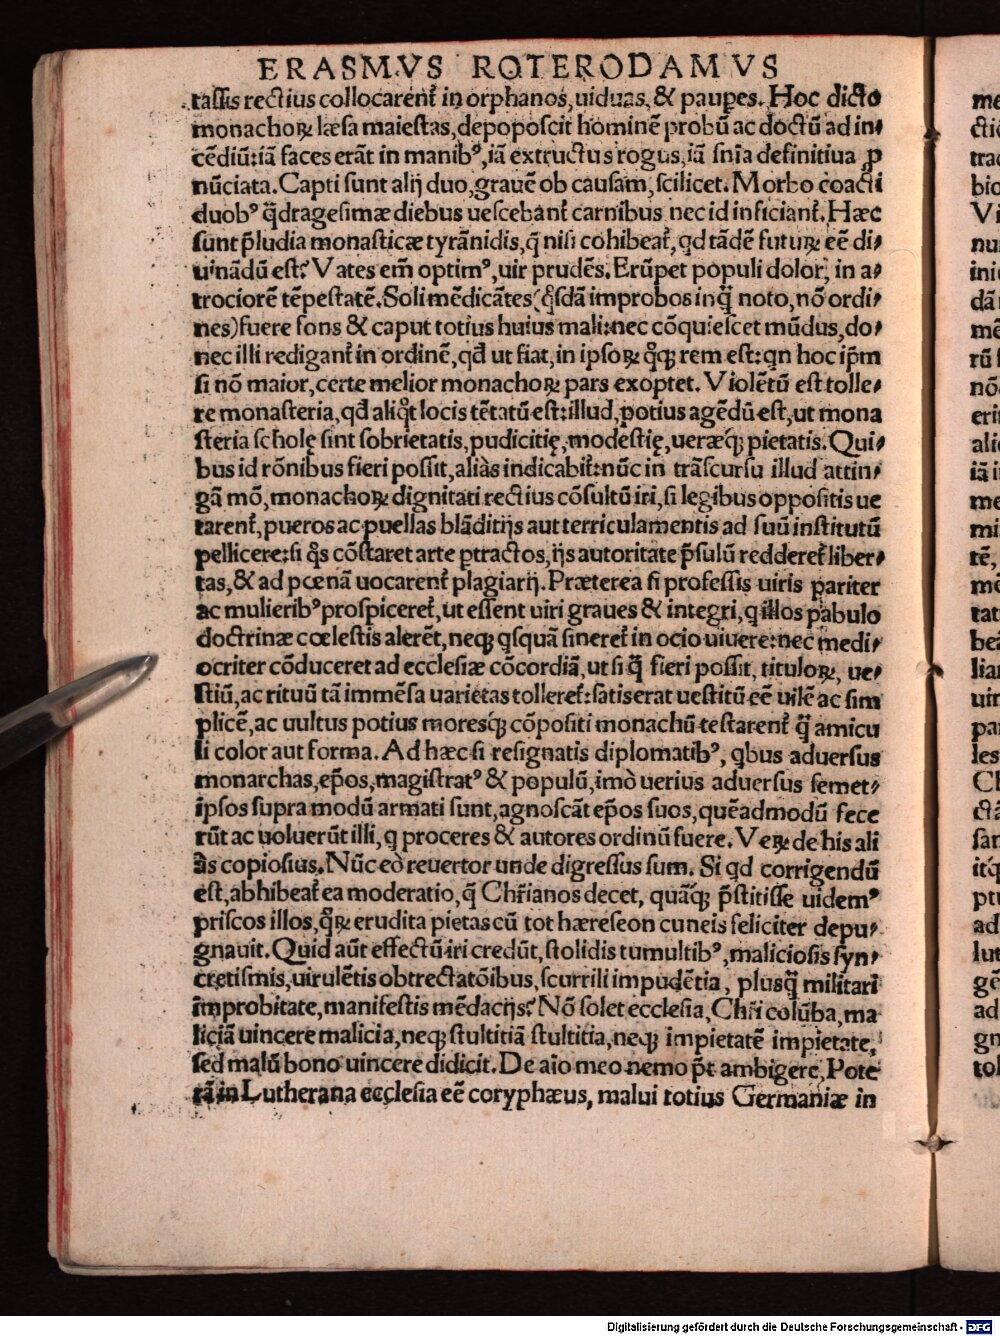 ERASMVS ROTERODAMVS
tassis rectius collocarent᷑ in orphanos, uiduas, & paupes. Hoc dicto
monachoꝝ læsa maiestas, depoposcit hominē probū ac doctū ad in⸗
cēdiū: iā faces erāt in manibꝰ, iā extructus rogus, iā snīa definitiua ꝓ
nūciata. Capti sunt alij duo, grauē ob causam, scilicet. Morbo coacti
duobꝰ q̈dragesimæ diebus uescebant᷑ carnibus nec id inficiant᷑. Hæc
sunt p̄ludia monasticæ tyrānidis, q̄ nisi cohibeat᷑, qd tādē futuꝝ eē di⸗
uinādū est? Vates em̄ optimꝰ, uir prudēs. Erūpet populi dolor, in a⸗
trociorē tēpestatē. Soli mēdicātes (qͥsdā improbos inq̈ noto, nō ordi⸗
nes) fuere fons & caput totius huius mali: nec cōquiescet mūdus, do⸗
nec illi redigant᷑ in ordinē, qd̄ ut fiat, in ipsoꝝ qͥꝗ rem est: qn hoc ip̄m
si nō maior, certe melior monachoꝝ pars exoptet. Violētū est tolle⸗
re monasteria, qd̄ aliqͦt locis tētatū est: illud, potius agēdū est, ut mona
steria scholę sint sobrietatis, pudicitię, modestię, ueræqꝫ pietatis. Qui⸗
bus id rōnibus fieri possit, aliàs indicabit᷑: nūc in trāscursu illud attin⸗
gā mō, monachoꝝ dignitati rectius cōsultū iri, si legibus oppositis ue
tarent᷑, pueros ac puellas blāditijs aut terriculamentis ad suū institutū
pellicere: si qͥs cōstaret arte ptractos, ijs autoritate p̄sulū redderet᷑ liber⸗
tas, & ad pœnā uocarent᷑ plagiarij. Præterea si professis uiris pariter
ac mulieribꝰ prospiceret᷑, ut essent uiri graues & integri, q illos pabulo
doctrinæ cœlestis alerēt, neqꝫ qͥsquā sineret᷑ in ocio uiuere: nec medi⸗
ocriter cōduceret ad ecclesiæ cōcordiā, ut si q̈ fieri possit, tituloꝝ, ue⸗
stiū, ac rituū tā immēsa uarietas tolleret᷑: satis erat uestitū eē uilē ac sim
plicē, ac uultus potius moresqꝫ cōpositi monachū testarent᷑ q̈ amicu
li color aut forma. Ad hæc si resignatis diplomatibꝰ, qbus aduersus
monarchas, ep̄os, magistratꝰ & populū, imò uerius aduersus semet⸗
ipsos supra modū armati sunt, agnoscāt ep̄os suos, quēadmodū fece
rūt ac uoluerūt illi, q proceres & autores ordinū fuere. Veꝝ de his ali
ās copiosius. Nūc eò reuertor unde digressus sum. Si qd corrigendū
est, abhibeat᷑ ea moderatio, q̄ Chr̄ianos decet, quāqꝫ p̄stitisse uidemꝰ
priscos illos, qͦꝝ erudita pietas cū tot hæreseon cuneis feliciter depu⸗
gnauit. Quid aūt effectū iri credūt, stolidis tumultibꝰ, maliciosis syn⸗
cretismis, uirulētis obtrectatōibus, scurrili impudētia, plusq̈ militari
improbitate, manifestis mēdacijs? Nō solet ecclesia, Chr̄i colūba, ma⸗
liciā uincere malicia, neqꝫ stultitiā stultitia, neqꝫ impietatē impietate,
sed malū bono uincere didicit. De aīo meo nemo pt̄ ambigere, Pote
rā in Lutherana ecclesia eē coryphæus, malui totius Germaniæ in
Digitalisierung gefördert durch die Deutsche Forschungsgemeinschaft - DFG